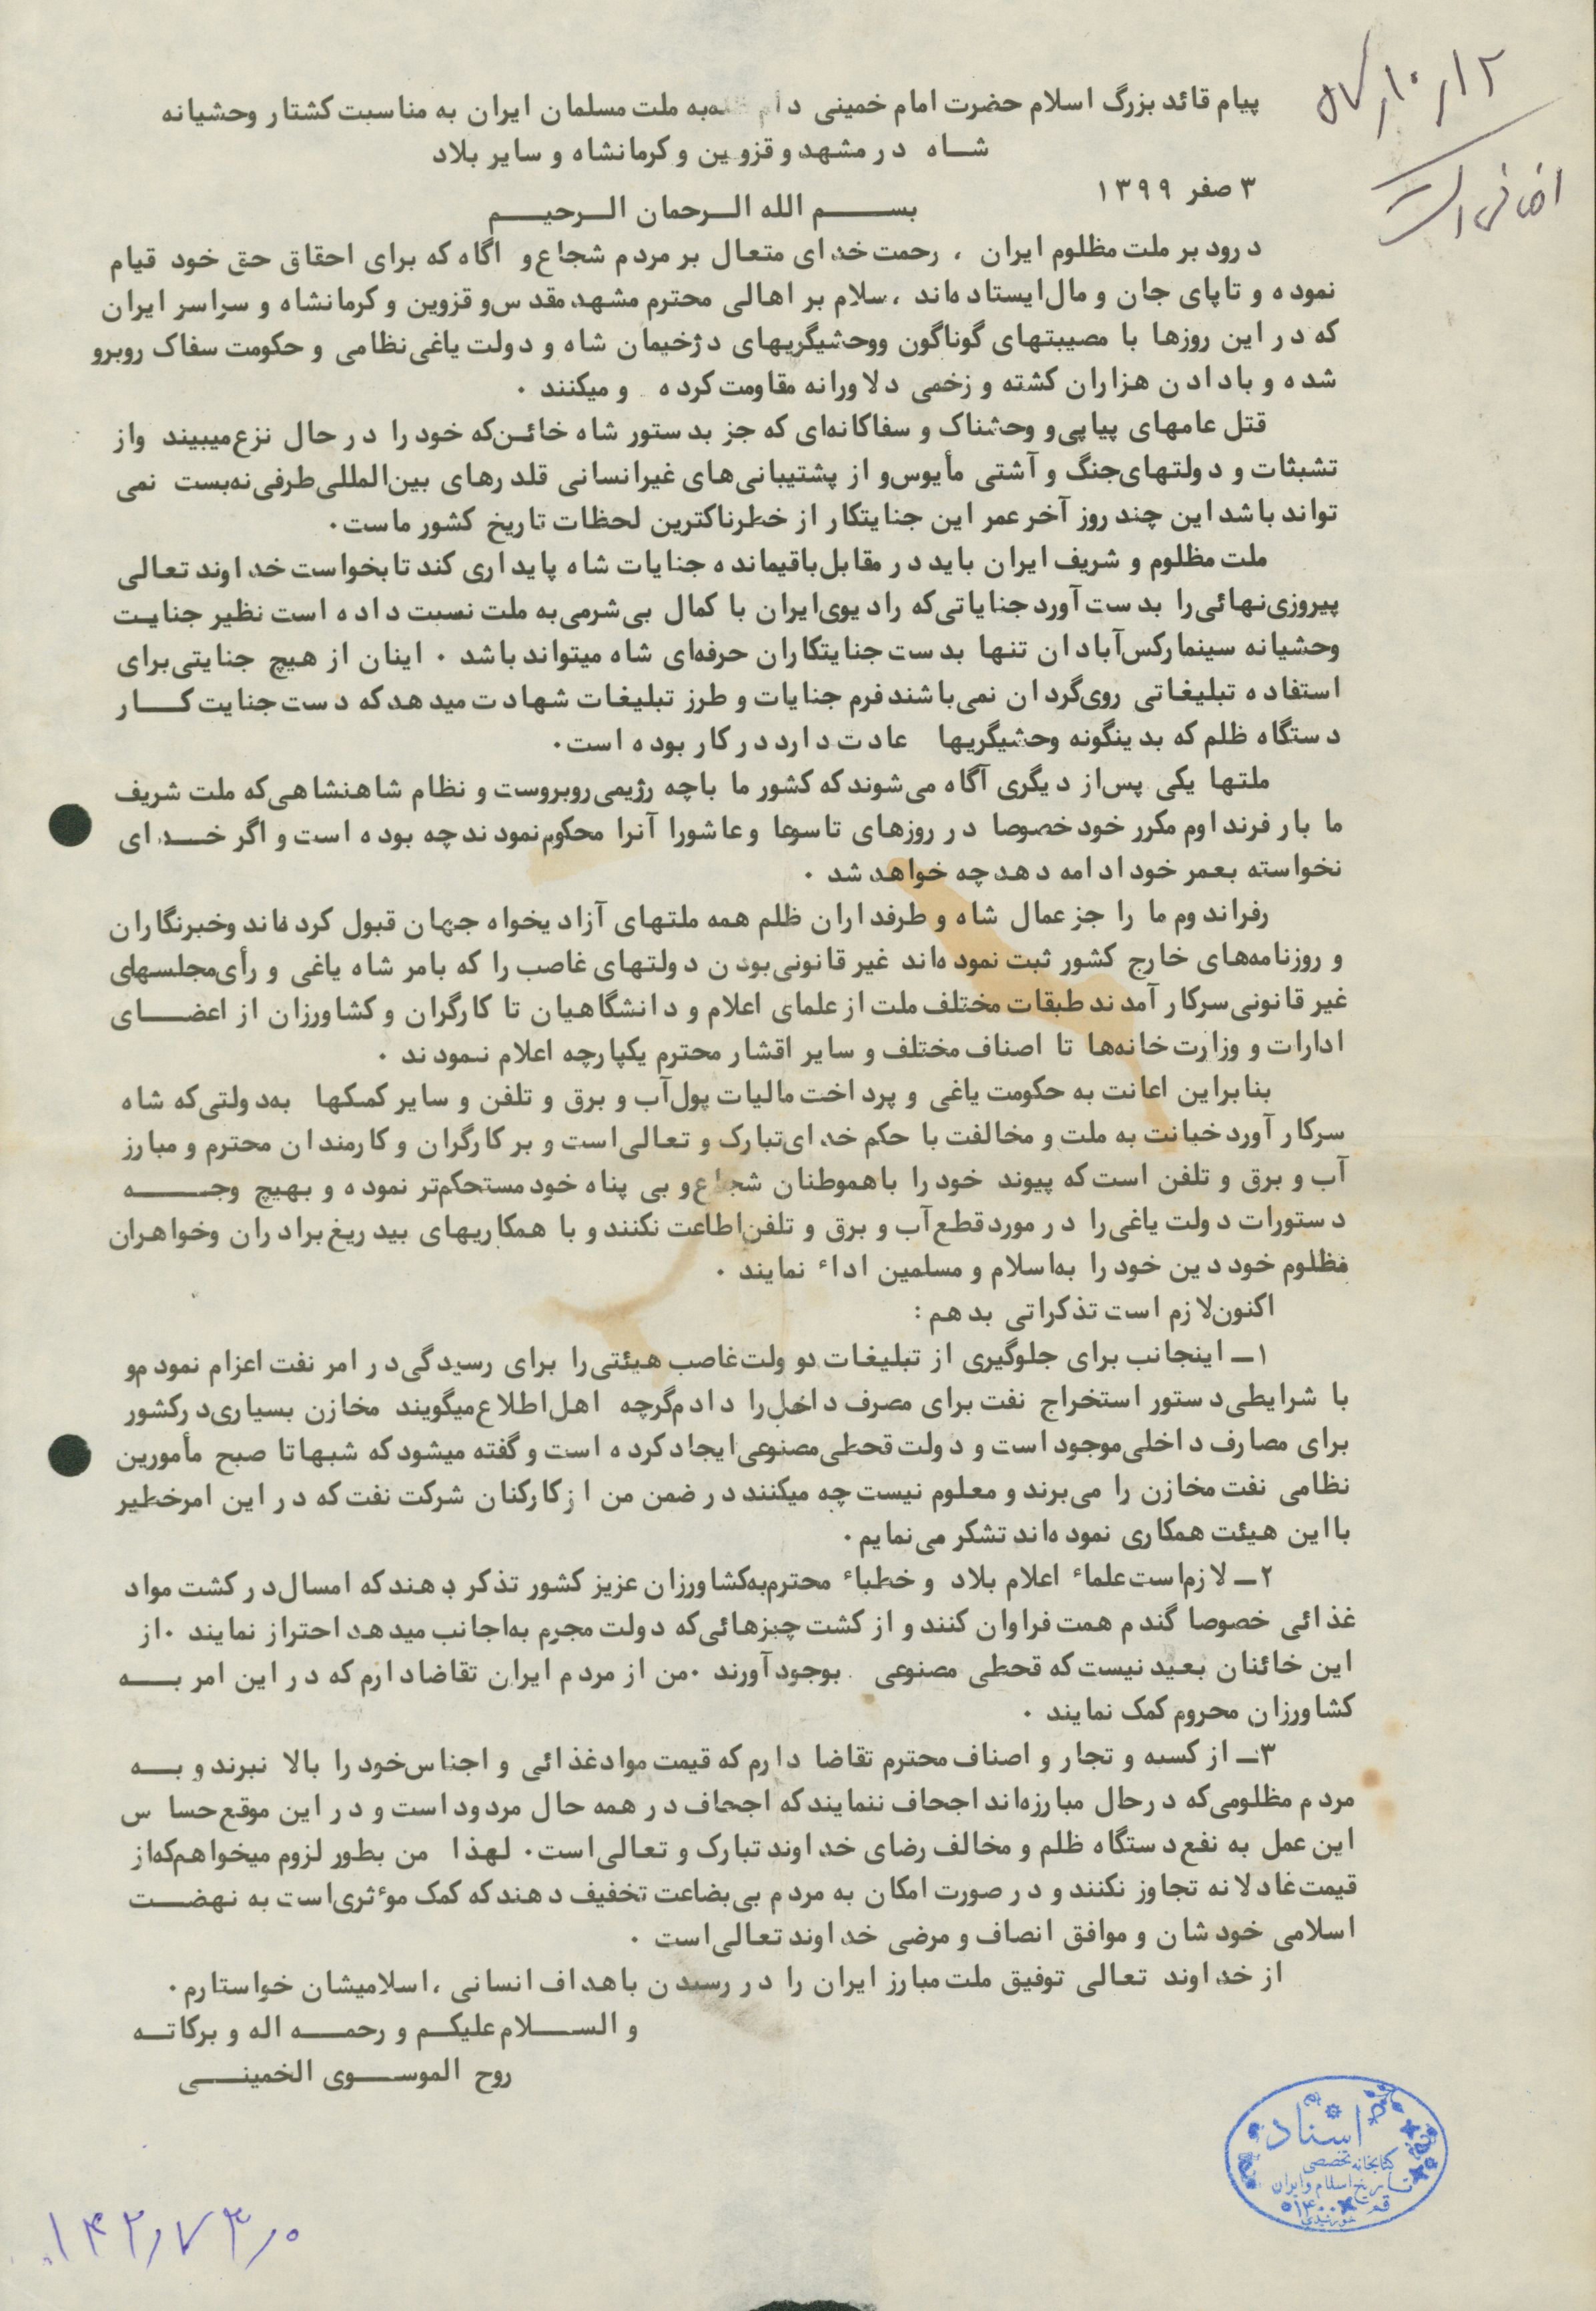 ۵۷٫۱۰٫۱۲
اضافی است
پیام قائد بزرگ اسلام حضرت امام خمینی دام به ملت مسلمان ایران به مناسبت کشتار وحشیانه
شاه در مشهد و قزوین و کرمانشاه و سایر بلاد
۳ صفر ۱۳۹۹
بسم الله الرحمان الرحیم
درود بر ملت مظلوم ایران ، رحمت خدای متعال بر مردم شجاع و اگاه که برای احقاق حق خود قیام
نموده و تاپای جان و مال ایستاده‌اند ، سلام بر اهالی محترم مشهد مقدس و قزوین و کرمانشاه و سراسر ایران
که در این روزها با مصیبتهای گوناگون ووحشیگریهای دژخیمان شاه و دولت یاغی نظامی و حکومت سفاک روبرو
شده و با دادن هزاران کشته و زخمی دلاورانه مقاومت کرده و میکنند .
قتل عامهای پیاپی و وحشناک و سفاکانه‌ای که جز بدستور شاه خائن که خود را در حال نزع میبیند واز
تشبثات و دولتهای جنگ و آشتی مأیوس و از پشتیبانی‌های غیرانسانی قلدرهای بین‌المللی طرفی نه‌بست نمی
تواند باشد این چند روز آخر عمر این جنایتکار از خطرناکترین لحظات تاریخ کشور ماست.
ملت مظلوم و شریف ایران باید در مقابل باقیمانده جنایات شاه پایداری کند تا بخواست خداوند تعالی
پیروزی نهائی را بدست آورد جنایاتی که رادیوی ایران با کمال بی‌شرمی به ملت نسبت داده است نظیر جنایت
وحشیانه سینما رکس آبادان تنها بدست جنایتکاران حرفه‌ای شاه میتواند باشد . اینان از هیچ جنایتی برای
استفاده تبلیغاتی روی‌گردان نمی‌باشند فرم جنایات و طرز تبلیغات شهادت میدهد که دست جنایت کار
دستگاه ظلم که بدینگونه وحشیگریها عادت دارد در کار بوده است.
ملتها یکی پس از دیگری آگاه می‌شوند که کشور ما باچه رژیمی روبروست و نظام شاهنشاهی که ملت شریف
ما بار فرنداوم مکرر خود خصوصا در روزهای تاسوعا و عاشورا آنرا محکوم نمودند چه بوده است و اگر خدای
نخواسته بعمر خود ادامه دهد چه خواهد شد .
رفراندوم ما را جز عمال شاه و طرفداران ظلم همه ملتهای آزادیخواه جهان قبول کرده‌اند وخبرنگاران
و روزنامه‌های خارج کشور ثبت نموده‌اند غیر قانونی بودن دولتهای غاصب را که بامر شاه یاغی و رأی مجلسهای
غیر قانونی سرکار آمدند طبقات مختلف ملت از علمای اعلام و دانشگاهیان تا کارگران و کشاورزان از اعضای
ادارات و وزارت خانه‌ها تا اصناف مختلف و سایر اقشار محترم یکپارچه اعلام نمودند .
بنابراین اعانت به حکومت یاغی و پرداخت مالیات پول آب و برق و تلفن و سایر کمکها به‌دولتی که شاه
سرکار آورد خیانت به ملت و مخالفت با حکم خدای تبارک و تعالی است و بر کارگران و کارمندان محترم و مبارز
آب و برق و تلفن است که پیوند خود را باهموطنان شجاع و بی پناه خود مستحکم‌تر نموده و بهیچ وجه
دستورات دولت یاغی را در مورد قطع آب و برق و تلفن اطاعت نکنند و با همکاریهای بیدریغ برادران وخواهران
مظلوم خود دین خود را به‌اسلام و مسلمین اداء نمایند .
اکنون لازم است تذکراتی بدهم :
۱ــ اینجانب برای جلوگیری از تبلیغات دو ولت غاصب هیئتی را برای رسیدگی در امر نفت اعزام نمودم و
با شرایطی دستور استخراج نفت برای مصرف داخل را دادم گرچه اهل اطلاع میگویند مخازن بسیاری در کشور
برای مصارف داخلی موجود است و دولت قحطی مصنوعی ایجاد کرده است و گفته میشود که شبها تا صبح مأمورین
نظامی نفت مخازن را می‌برند و معلوم نیست چه میکنند در ضمن من از کارکنان شرکت نفت که در این امر خطیر
بااین هیئت همکاری نموده‌اند تشکر می‌نمایم.
۲ــ لازم است علماء اعلام بلاد و خطباء محترم به‌کشاورزان عزیز کشور تذکر دهند که امسال در کشت مواد
غذائی خصوصا گندم همت فراوان کنند و از کشت چیزهائی که دولت مجرم به‌اجانب میدهد احتراز نمایند .از
این خائنان بعید نیست که قحطی مصنوعی بوجود آورند .من از مردم ایران تقاضا دارم که در این امر به
کشاورزان محروم کمک نمایند .
۳ــ از کسبه و تجار و اصناف محترم تقاضا دارم که قیمت مواد غذائی و اجناس خود را بالا نبرند و به
مردم مظلومی که در حال مبارزه‌اند اجحاف ننمایند که اجحاف در همه حال مردود است و در این موقع حساس
این عمل به نفع دستگاه ظلم و مخالف رضای خداوند تبارک و تعالی است. لهذا من بطور لزوم میخواهم که از
قیمت عادلانه تجاوز نکنند و در صورت امکان به مردم بی‌بضاعت تخفیف دهند که کمک موٴثری است به نهضت
اسلامی خودشان و موافق انصاف و مرضی خداوند تعالی است .
از خداوند تعالی توفیق ملت مبارز ایران را در رسیدن باهداف انسانی ،اسلامیشان خواستارم.
و السلام علیکم و رحمه اله و برکاته
روح الموسوی الخمینی
اسناد
کتابخانه تخصصی
تاریخ اسلام و ایران
قم
۱۴۲٫۷۳٫۰